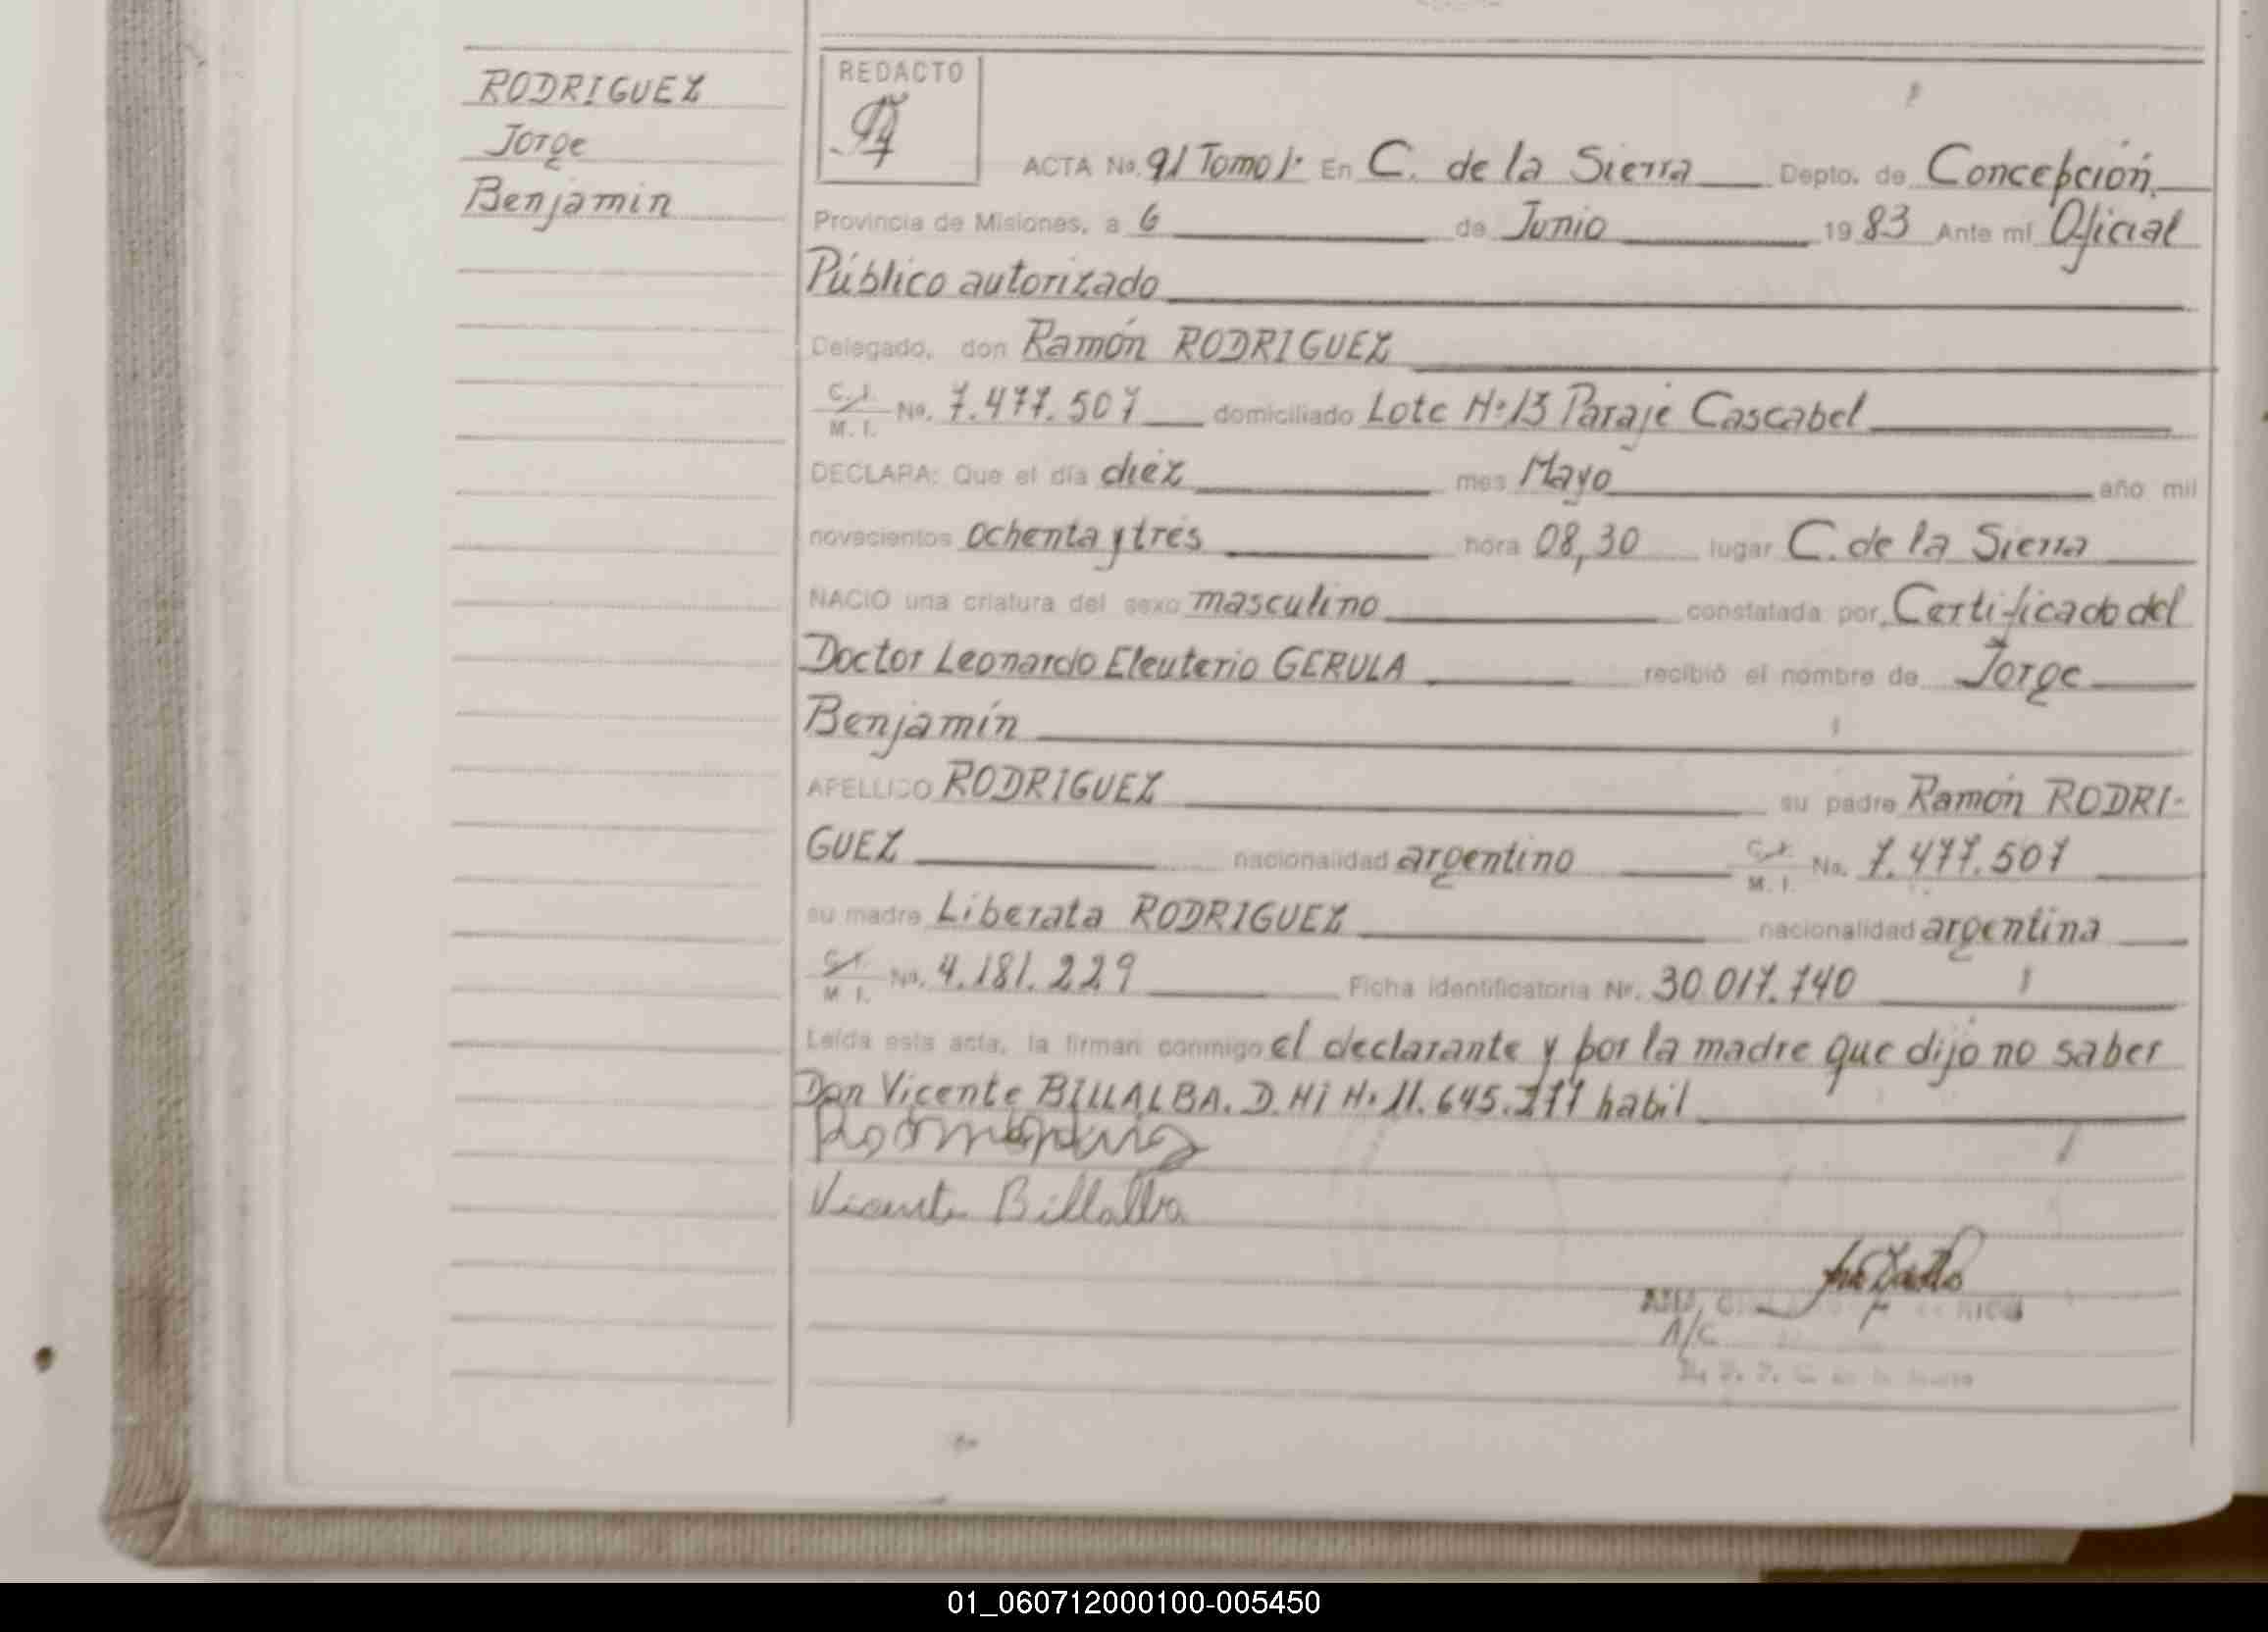 RODRIGUEZ
Jorge
Benjamin
REDACTO
ACTA No. 91 Tomo I· En C. de la Sierra Depto. de Concepción.
Provincia de Misiones, a 6 de Junio 1983 Ante mí Oficial
Público autorizado
Delegado, don Ramón RODRIGUEZ
C.I. / M. I. No. 7.477.507 domiciliado Lote Nº 13 Paraje Cascabel
DECLARA: Que el día diéz mes Mayo año mil
novecientos ochenta y tres hora 08,30 lugar C. de la Sierra
NACIO una criatura del sexo masculino constatada por Certificado del
Doctor Leonardo Eleuterio GERULA recibió el nombre de Jorge
Benjamín
APELLIDO RODRIGUEZ su padre Ramón RODRI-
GUEZ nacionalidad argentino C.I. / M. I. No. 7.477.507
su madre Liberata RODRIGUEZ nacionalidad argentina
C.I. / M I. No. 4.181.229 Ficha identificatoria Nº. 30.017.740
Leída esta acta, la firman conmigo el declarante y por la madre que dijo no saber
Don Vicente BILLALBA. D. Ni N· 11.645.277 habil
Vicente Billalba
A/C
01_060712000100-005450